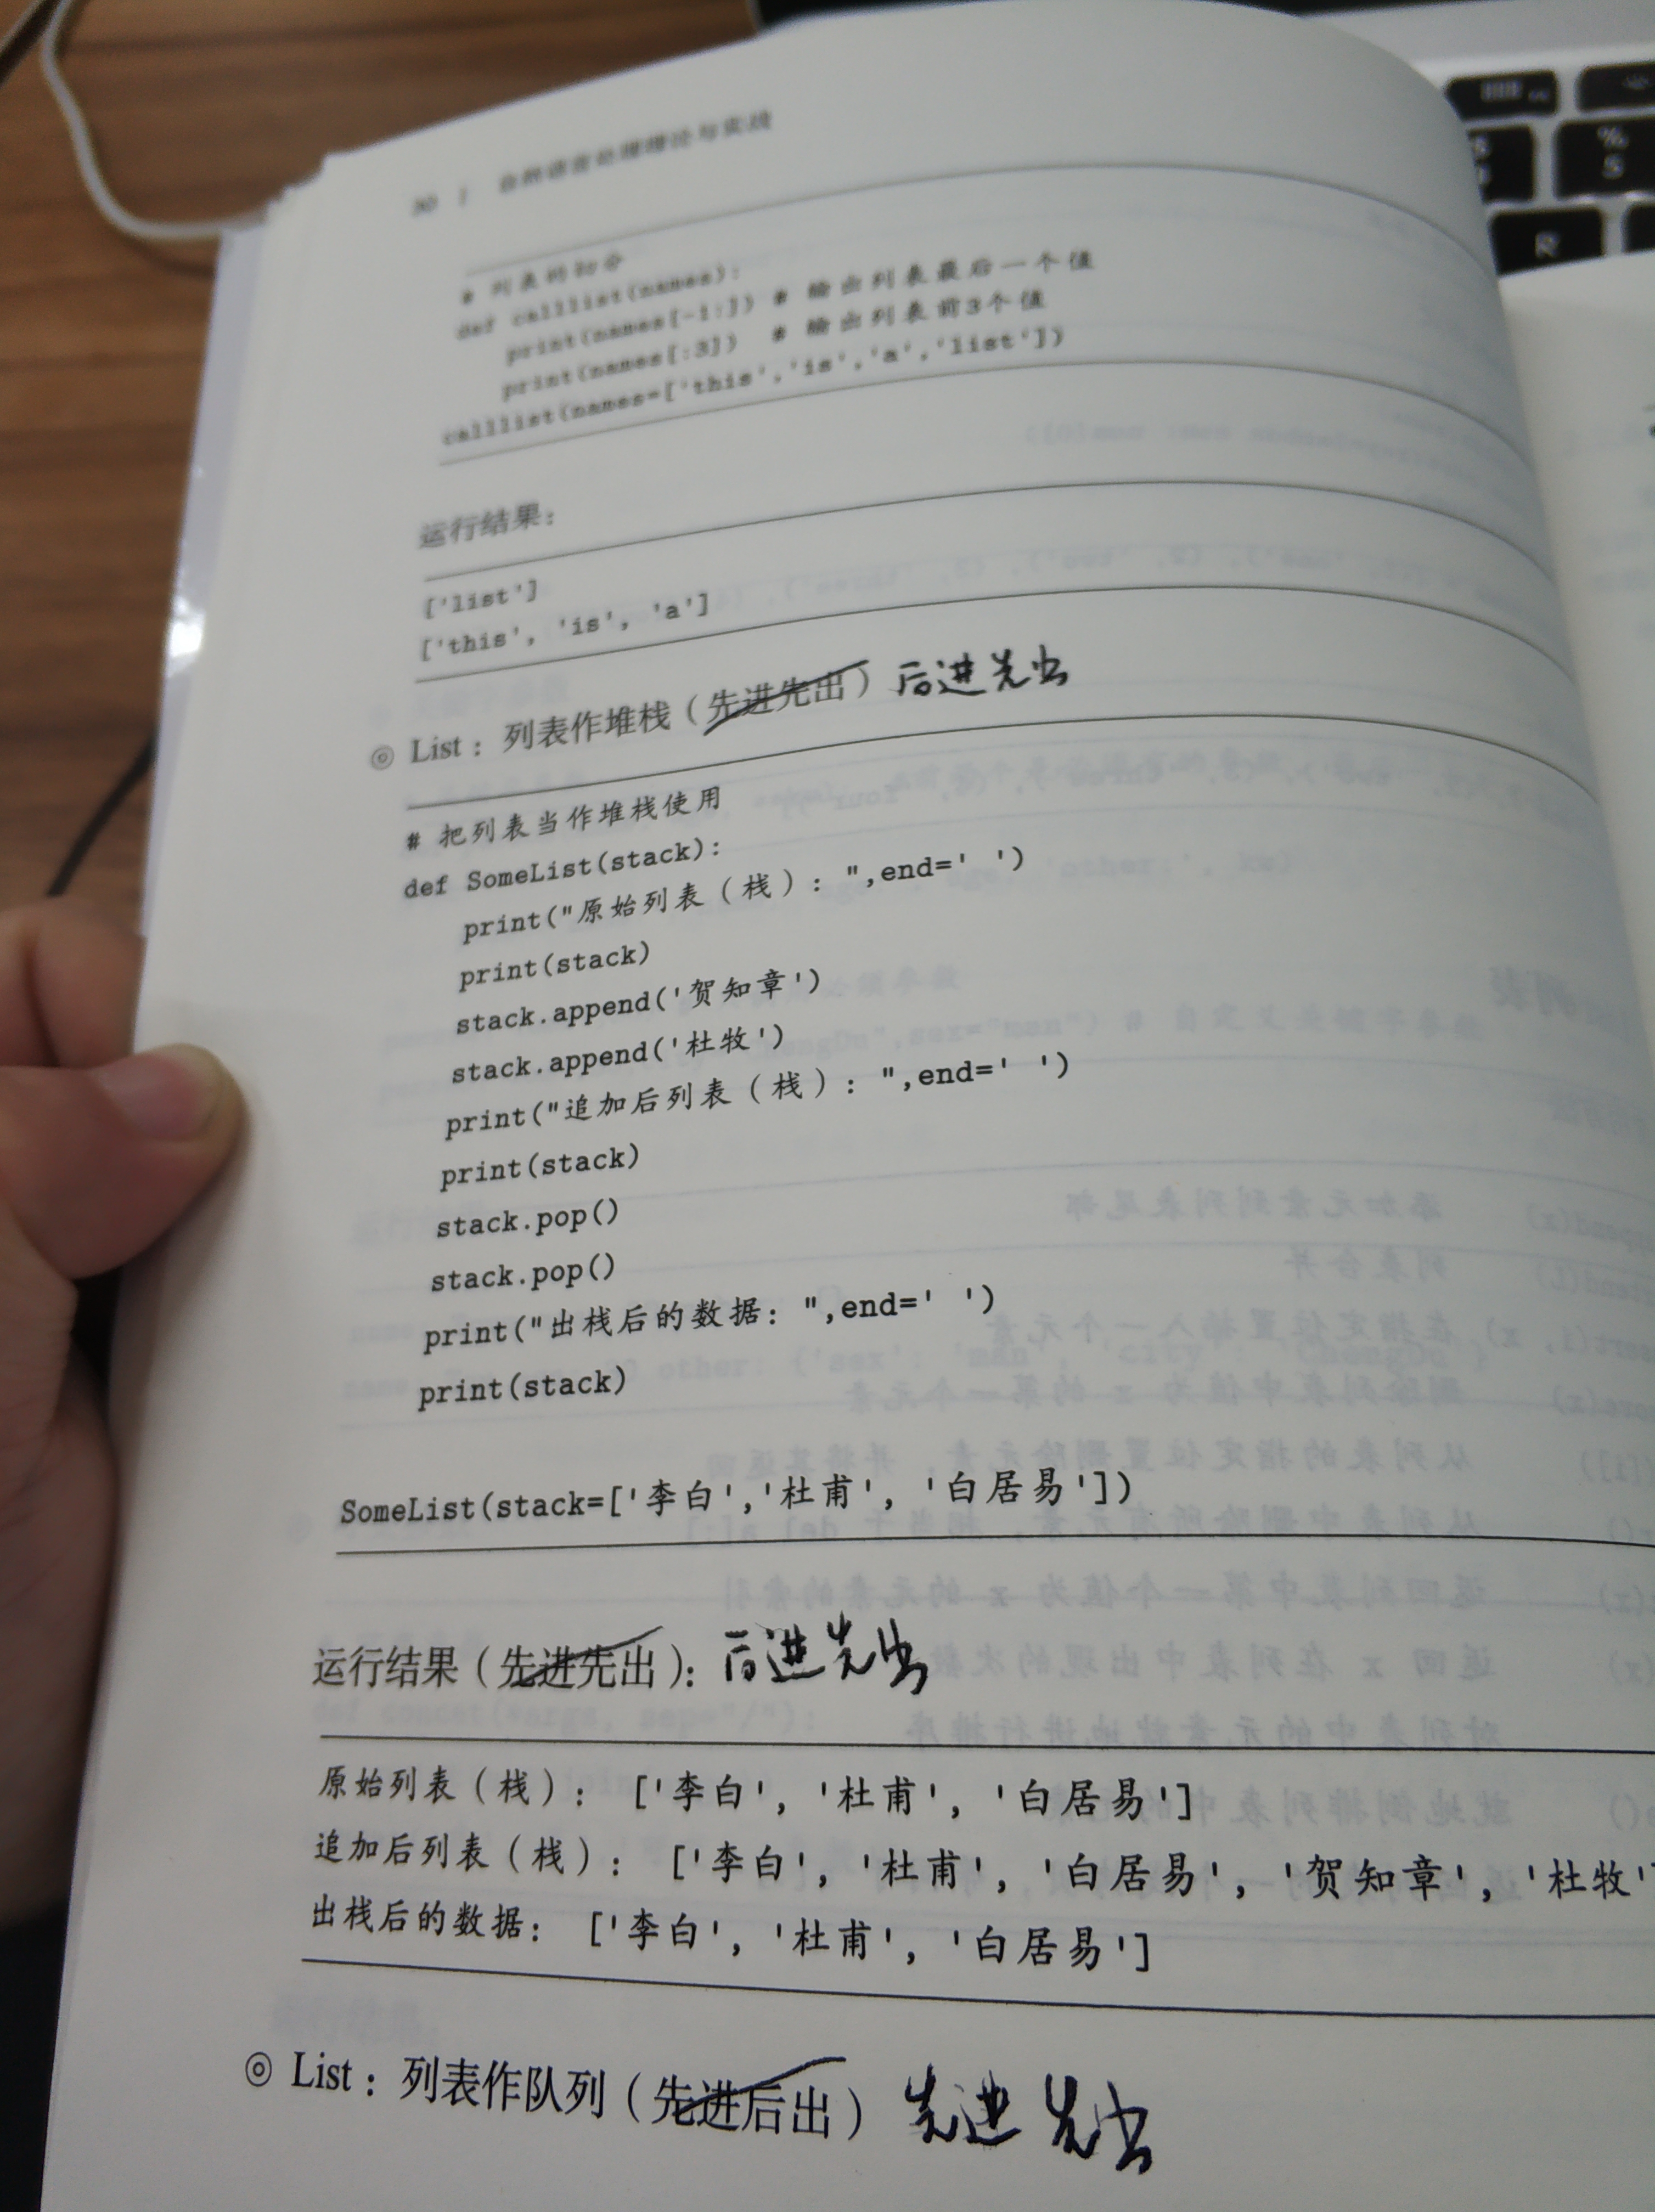 30 | 自然语言处理理论与实战
# 列表的切分
def calllist(names):
print(names[-1:]) # 输出列表最后一个值
print(names[:3]) # 输出列表前3个值
calllist(names=['this','is','a','list'])
运行结果：
['list']
['this', 'is', 'a']
◎ List：列表作堆栈（先进先出）后进先出
# 把列表当作堆栈使用
def SomeList(stack):
print("原始列表（栈）：",end=' ')
print(stack)
stack.append('贺知章')
stack.append('杜牧')
print("追加后列表（栈）：",end=' ')
print(stack)
stack.pop()
stack.pop()
print("出栈后的数据：",end=' ')
print(stack)
SomeList(stack=['李白','杜甫', '白居易'])
运行结果（先进先出）：后进先出
原始列表（栈）： ['李白', '杜甫', '白居易']
追加后列表（栈）： ['李白', '杜甫', '白居易', '贺知章', '杜牧'
出栈后的数据： ['李白', '杜甫', '白居易']
◎ List：列表作队列（先进后出）先进先出